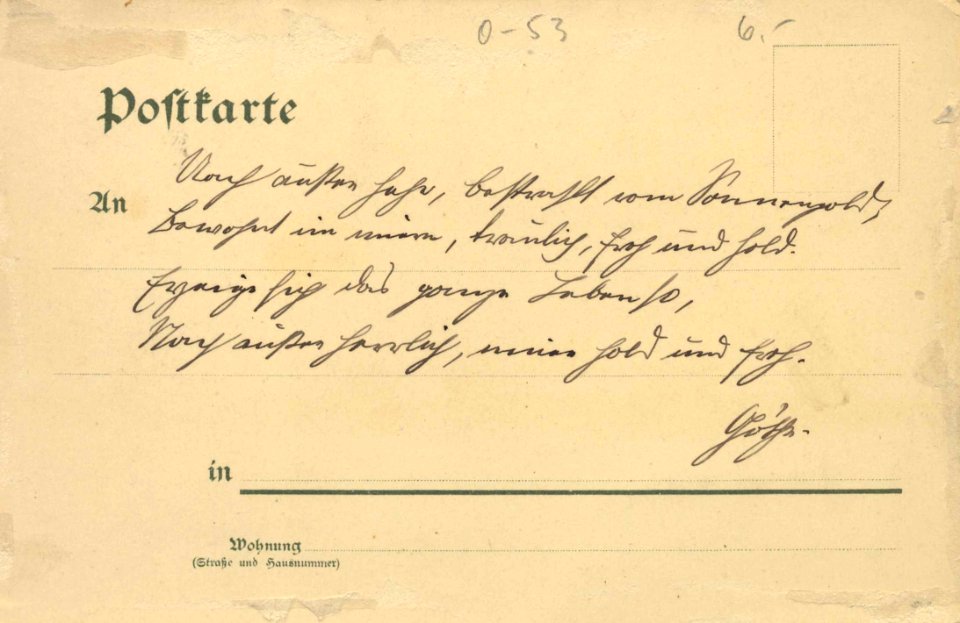 0-53 6.-
Postkarte
An
Nach außen hehr, bestrahlt vom Sonnengold,
Bewohnt im innern, traulich, froh und hold.
Erzeige sich das ganze Leben so,
Nach außen herrlich, innen hold und froh.
Göthe.
in
Wohnung
(Straße und Hausnummer)